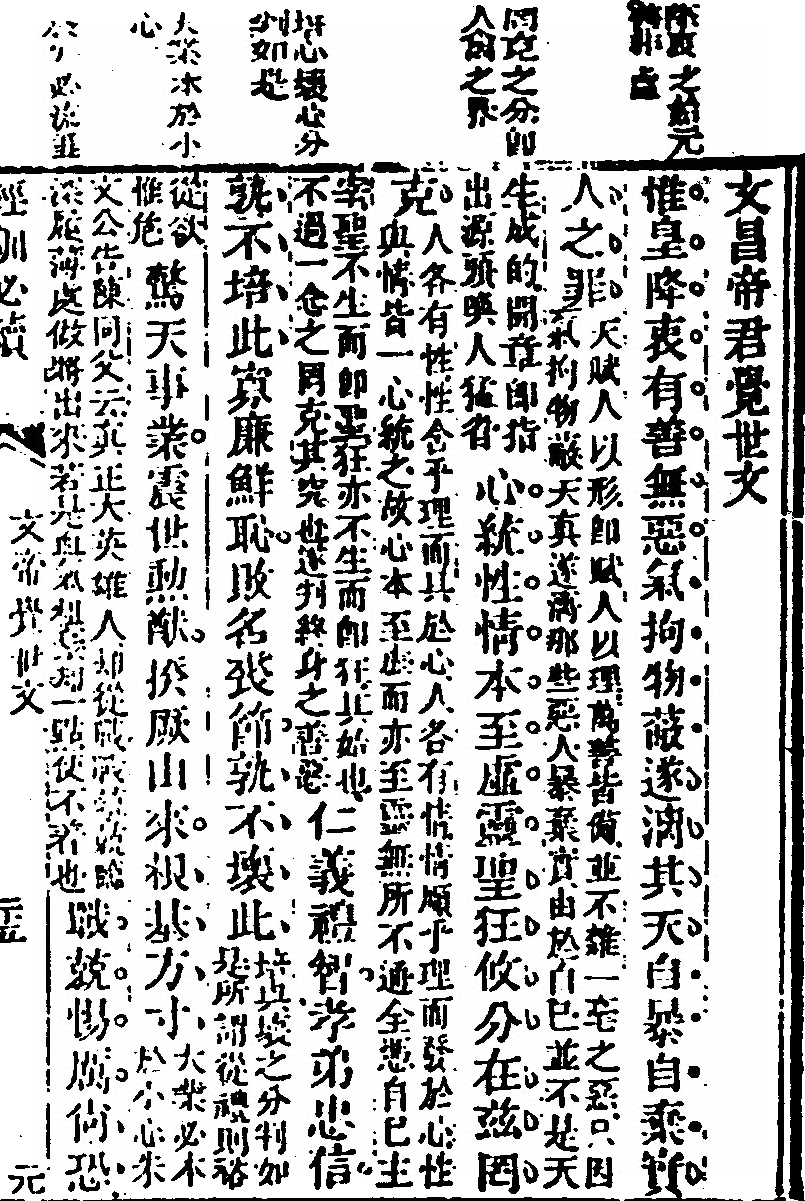 降衷之始元
罔克之分卽
人禽之界
培心壞心分
判如是
大業本於小
心
文昌帝君覺世文
惟皇降衷有善無惡氣拘物蔽遂漓其天自暴自棄實
人之罪
天賦人以形卽賦人以理萬善皆備並不雜一毫之惡只因
氣拘物蔽天真遂漓那些惡人暴棄實由於自己並不是天
生成的開章卽指
出源頭喚人猛省
心統性情本至虛靈聖狂攸分在茲罔
克
人各有性性含乎理而具於心人各有情情順乎理而發於心性
與情皆一心統之故心本至虛而亦至靈無所不通全憑自己主
宰聖不生而卽聖狂亦不生而卽狂其始也
不過一念之罔克其究也遂判終身之善惡
仁義禮智孝弟忠信
孰不培此寡廉鮮恥敗名喪節孰不壞此
培與壞之分判如
是所謂從禮則裕
從欲
惟危
驚天事業震世勳猷揆厥由來根基方寸
大業必本
於小心朱
文公告陳同父云真正大英雄人却從戰戰兢兢臨
深履薄處做將出來若是血氣粗豪却一點使不著也
戰兢惕厲尚恐
經訓必讀
文帝覺世文
元